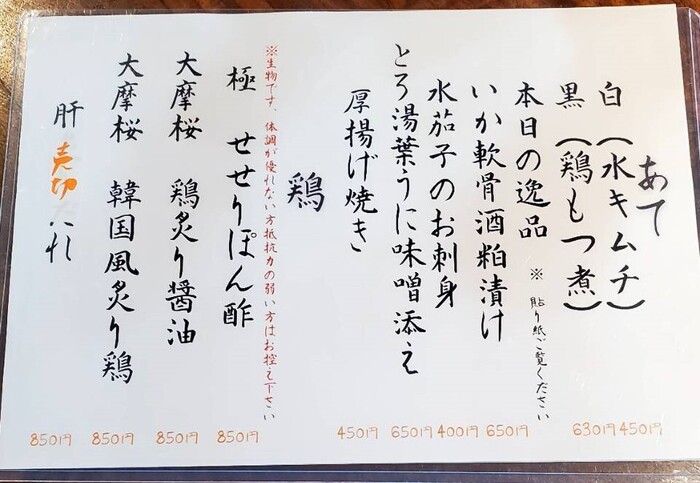 あて
白(水キムチ) 450円
黒(鶏もつ煮) 630円
本日の逸品 ※貼り紙ご覧ください
いか軟骨酒粕漬け 650円
水茄子のお刺身 400円
とろ湯葉うに味噌添え 650円
厚揚げ焼き 450円
鶏
※生物です、体調が優れない方抵抗力の弱い方はお控え下さい
極 せせりぽん酢 850円
大摩桜 鶏炙り醤油 850円
大摩桜 韓国風炙り鶏 850円
肝 売切 850円